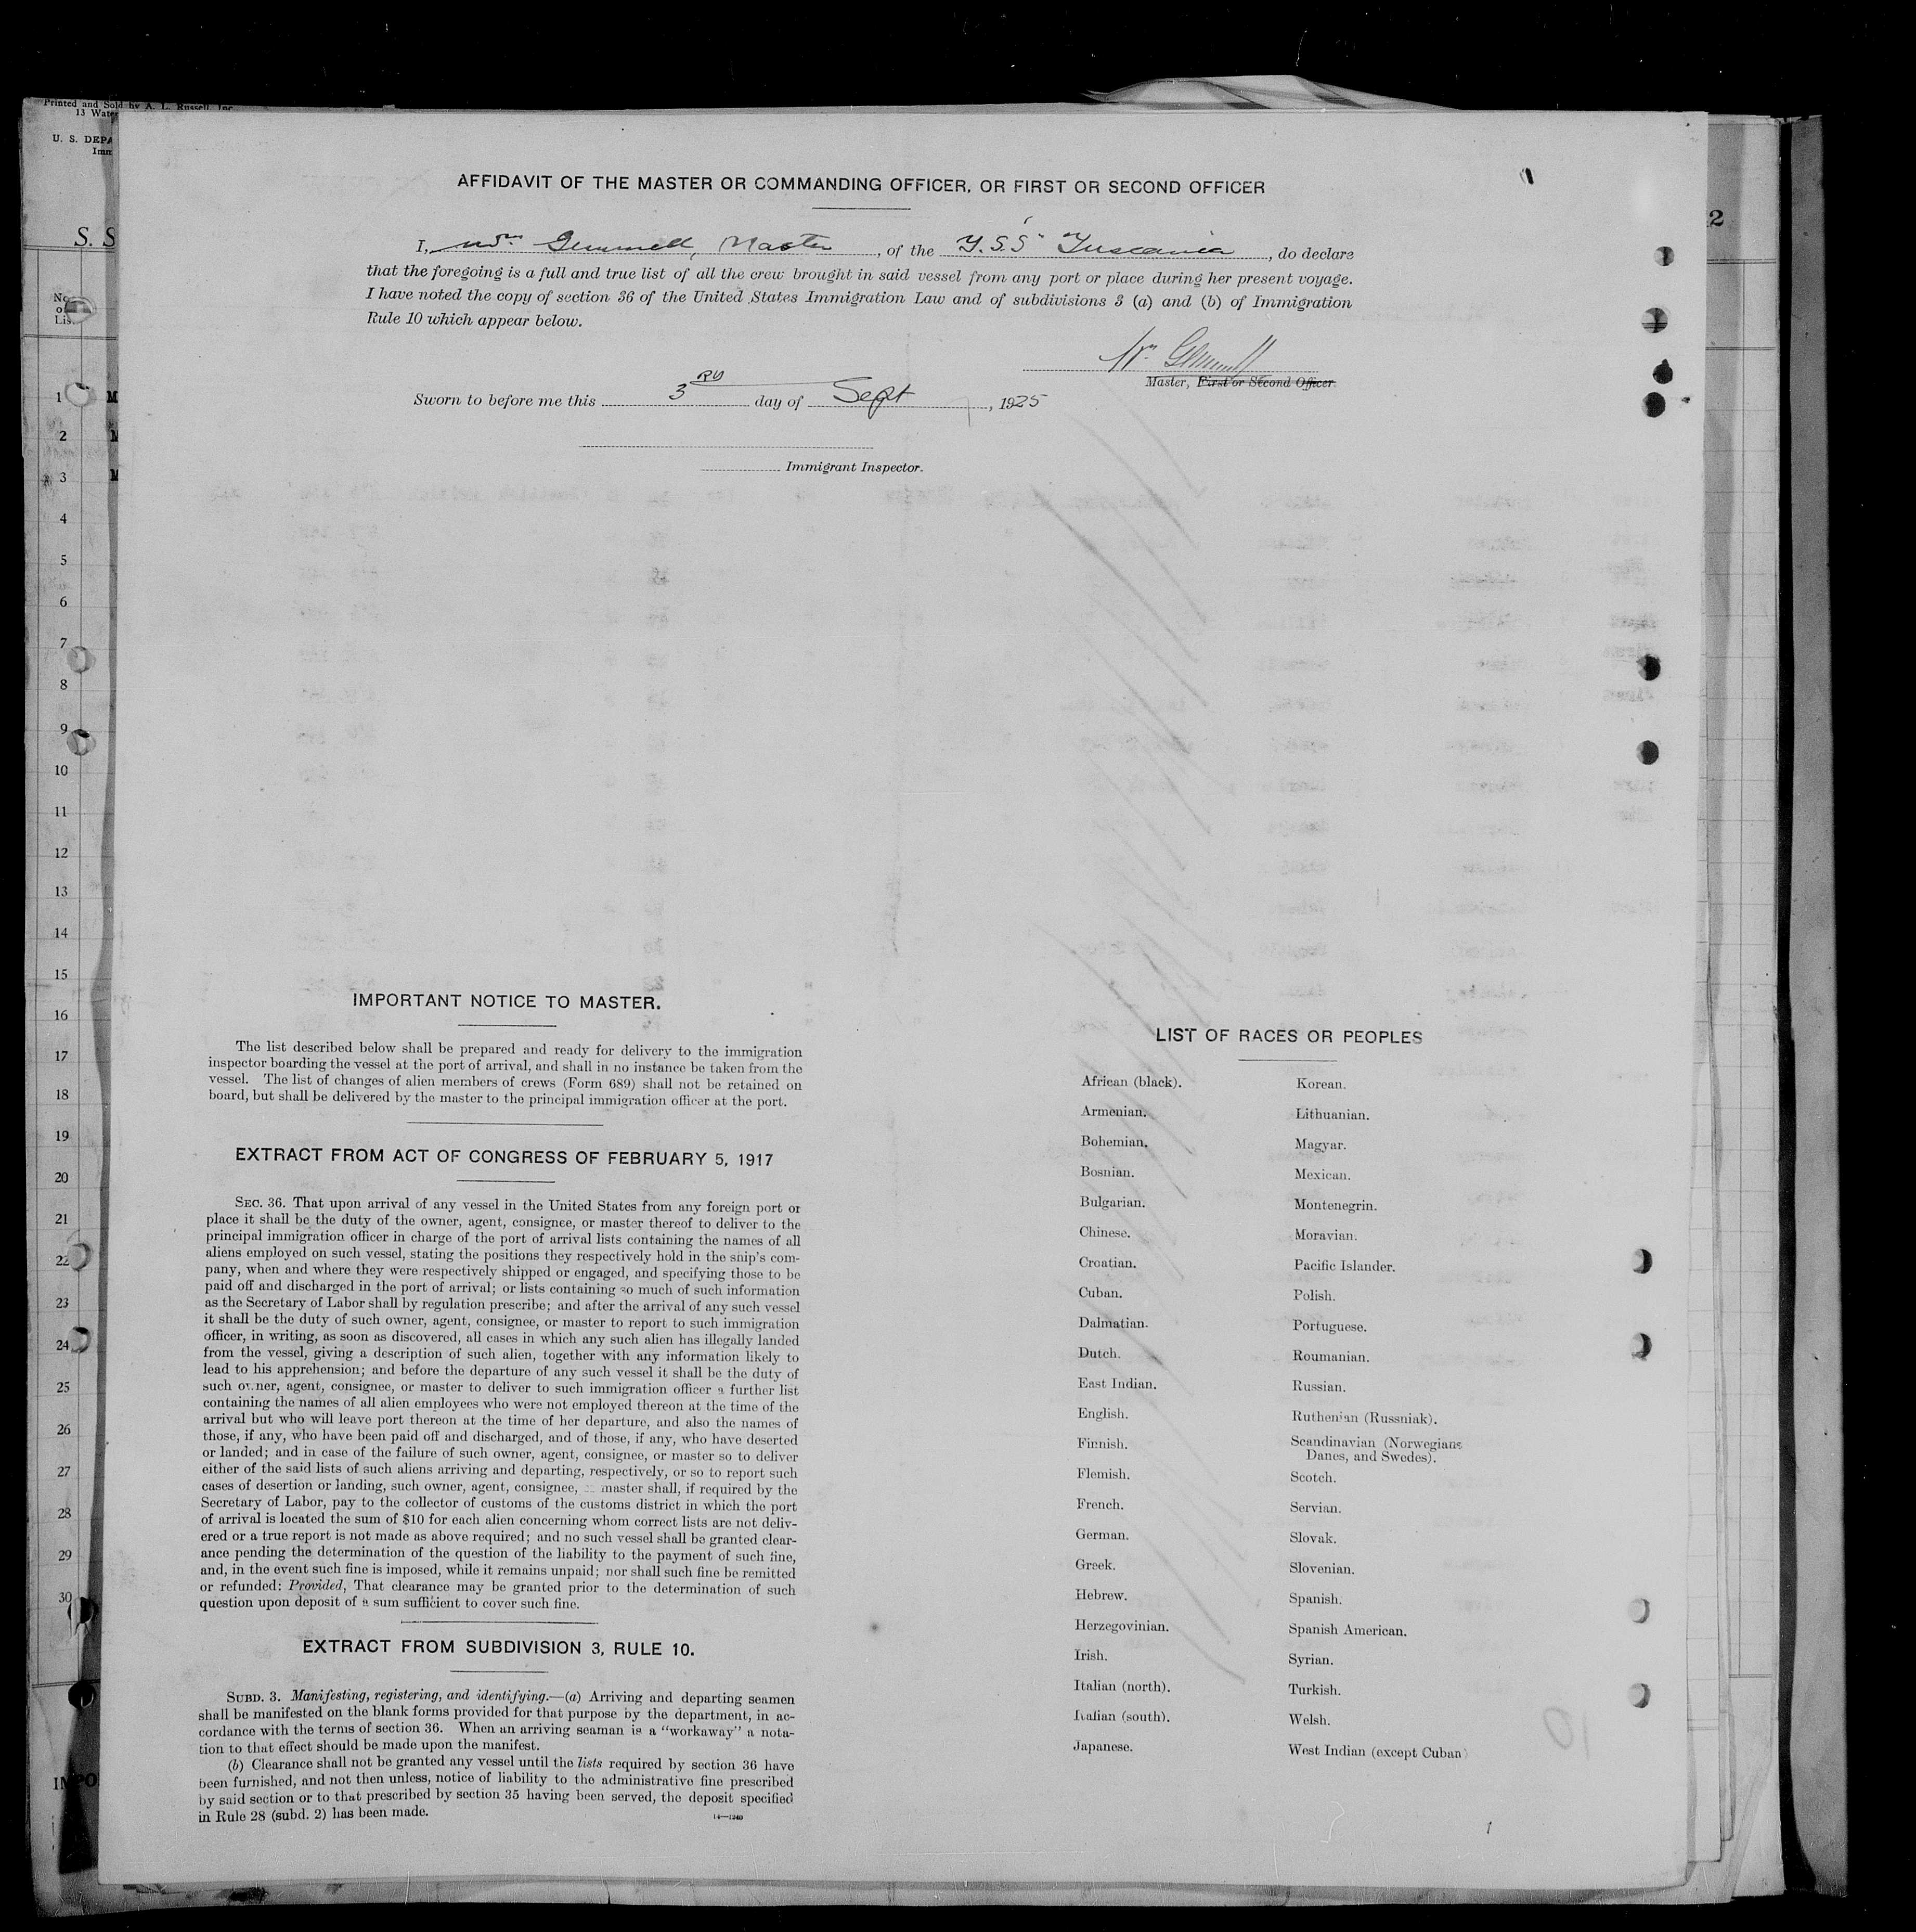 Printed and Sold by A. L. Russell, Inc.
13 Water
U. S. DEPA
Imm
S. S
2
No.
of
List
1
2
3
4
5
6
7
8
9
10
11
12
13
14
15
16
17
18
19
20
21
22
23
24
25
26
27
28
29
30
IMPO
AFFIDAVIT OF THE MASTER OR COMMANDING OFFICER, OR FIRST OR SECOND OFFICER
I, Wm Gemmell, Master, of the T.S.S. "Tuscania", do declare
that the foregoing is a full and true list of all the crew brought in said vessel from any port or place during her present voyage.
I have noted the copy of section 36 of the United States Immigration Law and of subdivisions 3 (a) and (b) of Immigration
Rule 10 which appear below.
Wm Gemmell
Master, First or Second Officer.
Sworn to before me this 3RD day of Sept, 1925
Immigrant Inspector.
IMPORTANT NOTICE TO MASTER.
The list described below shall be prepared and ready for delivery to the immigration
inspector boarding the vessel at the port of arrival, and shall in no instance be taken from the
vessel. The list of changes of alien members of crews (Form 689) shall not be retained on
board, but shall be delivered by the master to the principal immigration officer at the port.
EXTRACT FROM ACT OF CONGRESS OF FEBRUARY 5, 1917
SEC. 36. That upon arrival of any vessel in the United States from any foreign port or
place it shall be the duty of the owner, agent, consignee, or master thereof to deliver to the
principal immigration officer in charge of the port of arrival lists containing the names of all
aliens employed on such vessel, stating the positions they respectively hold in the ship's com-
pany, when and where they were respectively shipped or engaged, and specifying those to be
paid off and discharged in the port of arrival; or lists containing so much of such information
as the Secretary of Labor shall by regulation prescribe; and after the arrival of any such vessel
it shall be the duty of such owner, agent, consignee, or master to report to such immigration
officer, in writing, as soon as discovered, all cases in which any such alien has illegally landed
from the vessel, giving a description of such alien, together with any information likely to
lead to his apprehension; and before the departure of any such vessel it shall be the duty of
such owner, agent, consignee, or master to deliver to such immigration officer a further list
containing the names of all alien employees who were not employed thereon at the time of the
arrival but who will leave port thereon at the time of her departure, and also the names of
those, if any, who have been paid off and discharged, and of those, if any, who have deserted
or landed; and in case of the failure of such owner, agent, consignee, or master so to deliver
either of the said lists of such aliens arriving and departing, respectively, or so to report such
cases of desertion or landing, such owner, agent, consignee, or master shall, if required by the
Secretary of Labor, pay to the collector of customs of the customs district in which the port
of arrival is located the sum of $10 for each alien concerning whom correct lists are not deliv-
ered or a true report is not made as above required; and no such vessel shall be granted clear-
ance pending the determination of the question of the liability to the payment of such fine,
and, in the event such fine is imposed, while it remains unpaid; nor shall such fine be remitted
or refunded: Provided, That clearance may be granted prior to the determination of such
question upon deposit of a sum sufficient to cover such fine.
EXTRACT FROM SUBDIVISION 3, RULE 10.
SUBD. 3. Manifesting, registering, and identifying.—(a) Arriving and departing seamen
shall be manifested on the blank forms provided for that purpose by the department, in ac-
cordance with the terms of section 36. When an arriving seaman is a "workaway" a nota-
tion to that effect should be made upon the manifest.
(b) Clearance shall not be granted any vessel until the lists required by section 36 have
been furnished, and not then unless, notice of liability to the administrative fine prescribed
by said section or to that prescribed by section 35 having been served, the deposit specified
in Rule 28 (subd. 2) has been made.
14—1240
LIST OF RACES OR PEOPLES
African (black).
Armenian.
Bohemian.
Bosnian.
Bulgarian.
Chinese.
Croatian.
Cuban.
Dalmatian.
Dutch.
East Indian.
English.
Finnish.
Flemish.
French.
German.
Greek.
Hebrew.
Herzegovinian.
Irish.
Italian (north).
Italian (south).
Japanese.
Korean.
Lithuanian.
Magyar.
Mexican.
Montenegrin.
Moravian.
Pacific Islander.
Polish.
Portuguese.
Roumanian.
Russian.
Ruthenian (Russniak).
Scandinavian (Norwegians
Danes, and Swedes).
Scotch.
Servian.
Slovak.
Slovenian.
Spanish.
Spanish American.
Syrian.
Turkish.
Welsh.
West Indian (except Cuban)